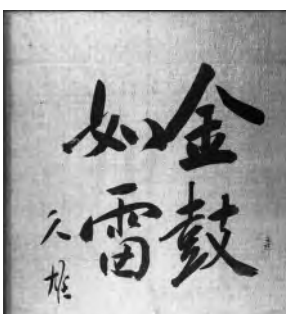 金鼓
如雷
久雄